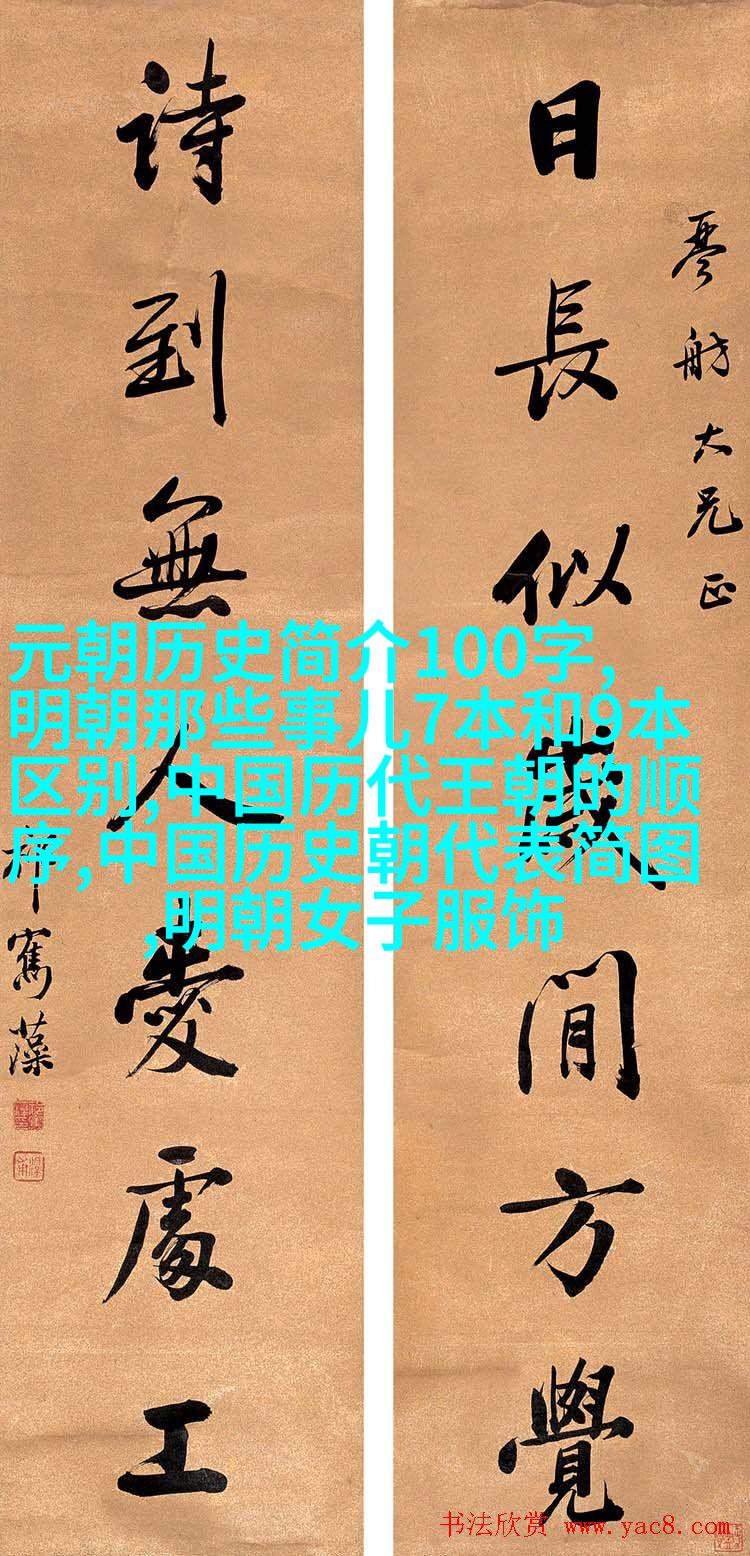 琴舫大兄正
日長似歲閒方覺
詩到無人愛處工
祁寯藻
元朝历史简介100字,
明朝那些事儿7本和9本
区别,中国历代王朝的顺
序,中国历史朝代表简图
,明朝女子服饰
书法欣赏 www.yac8.com